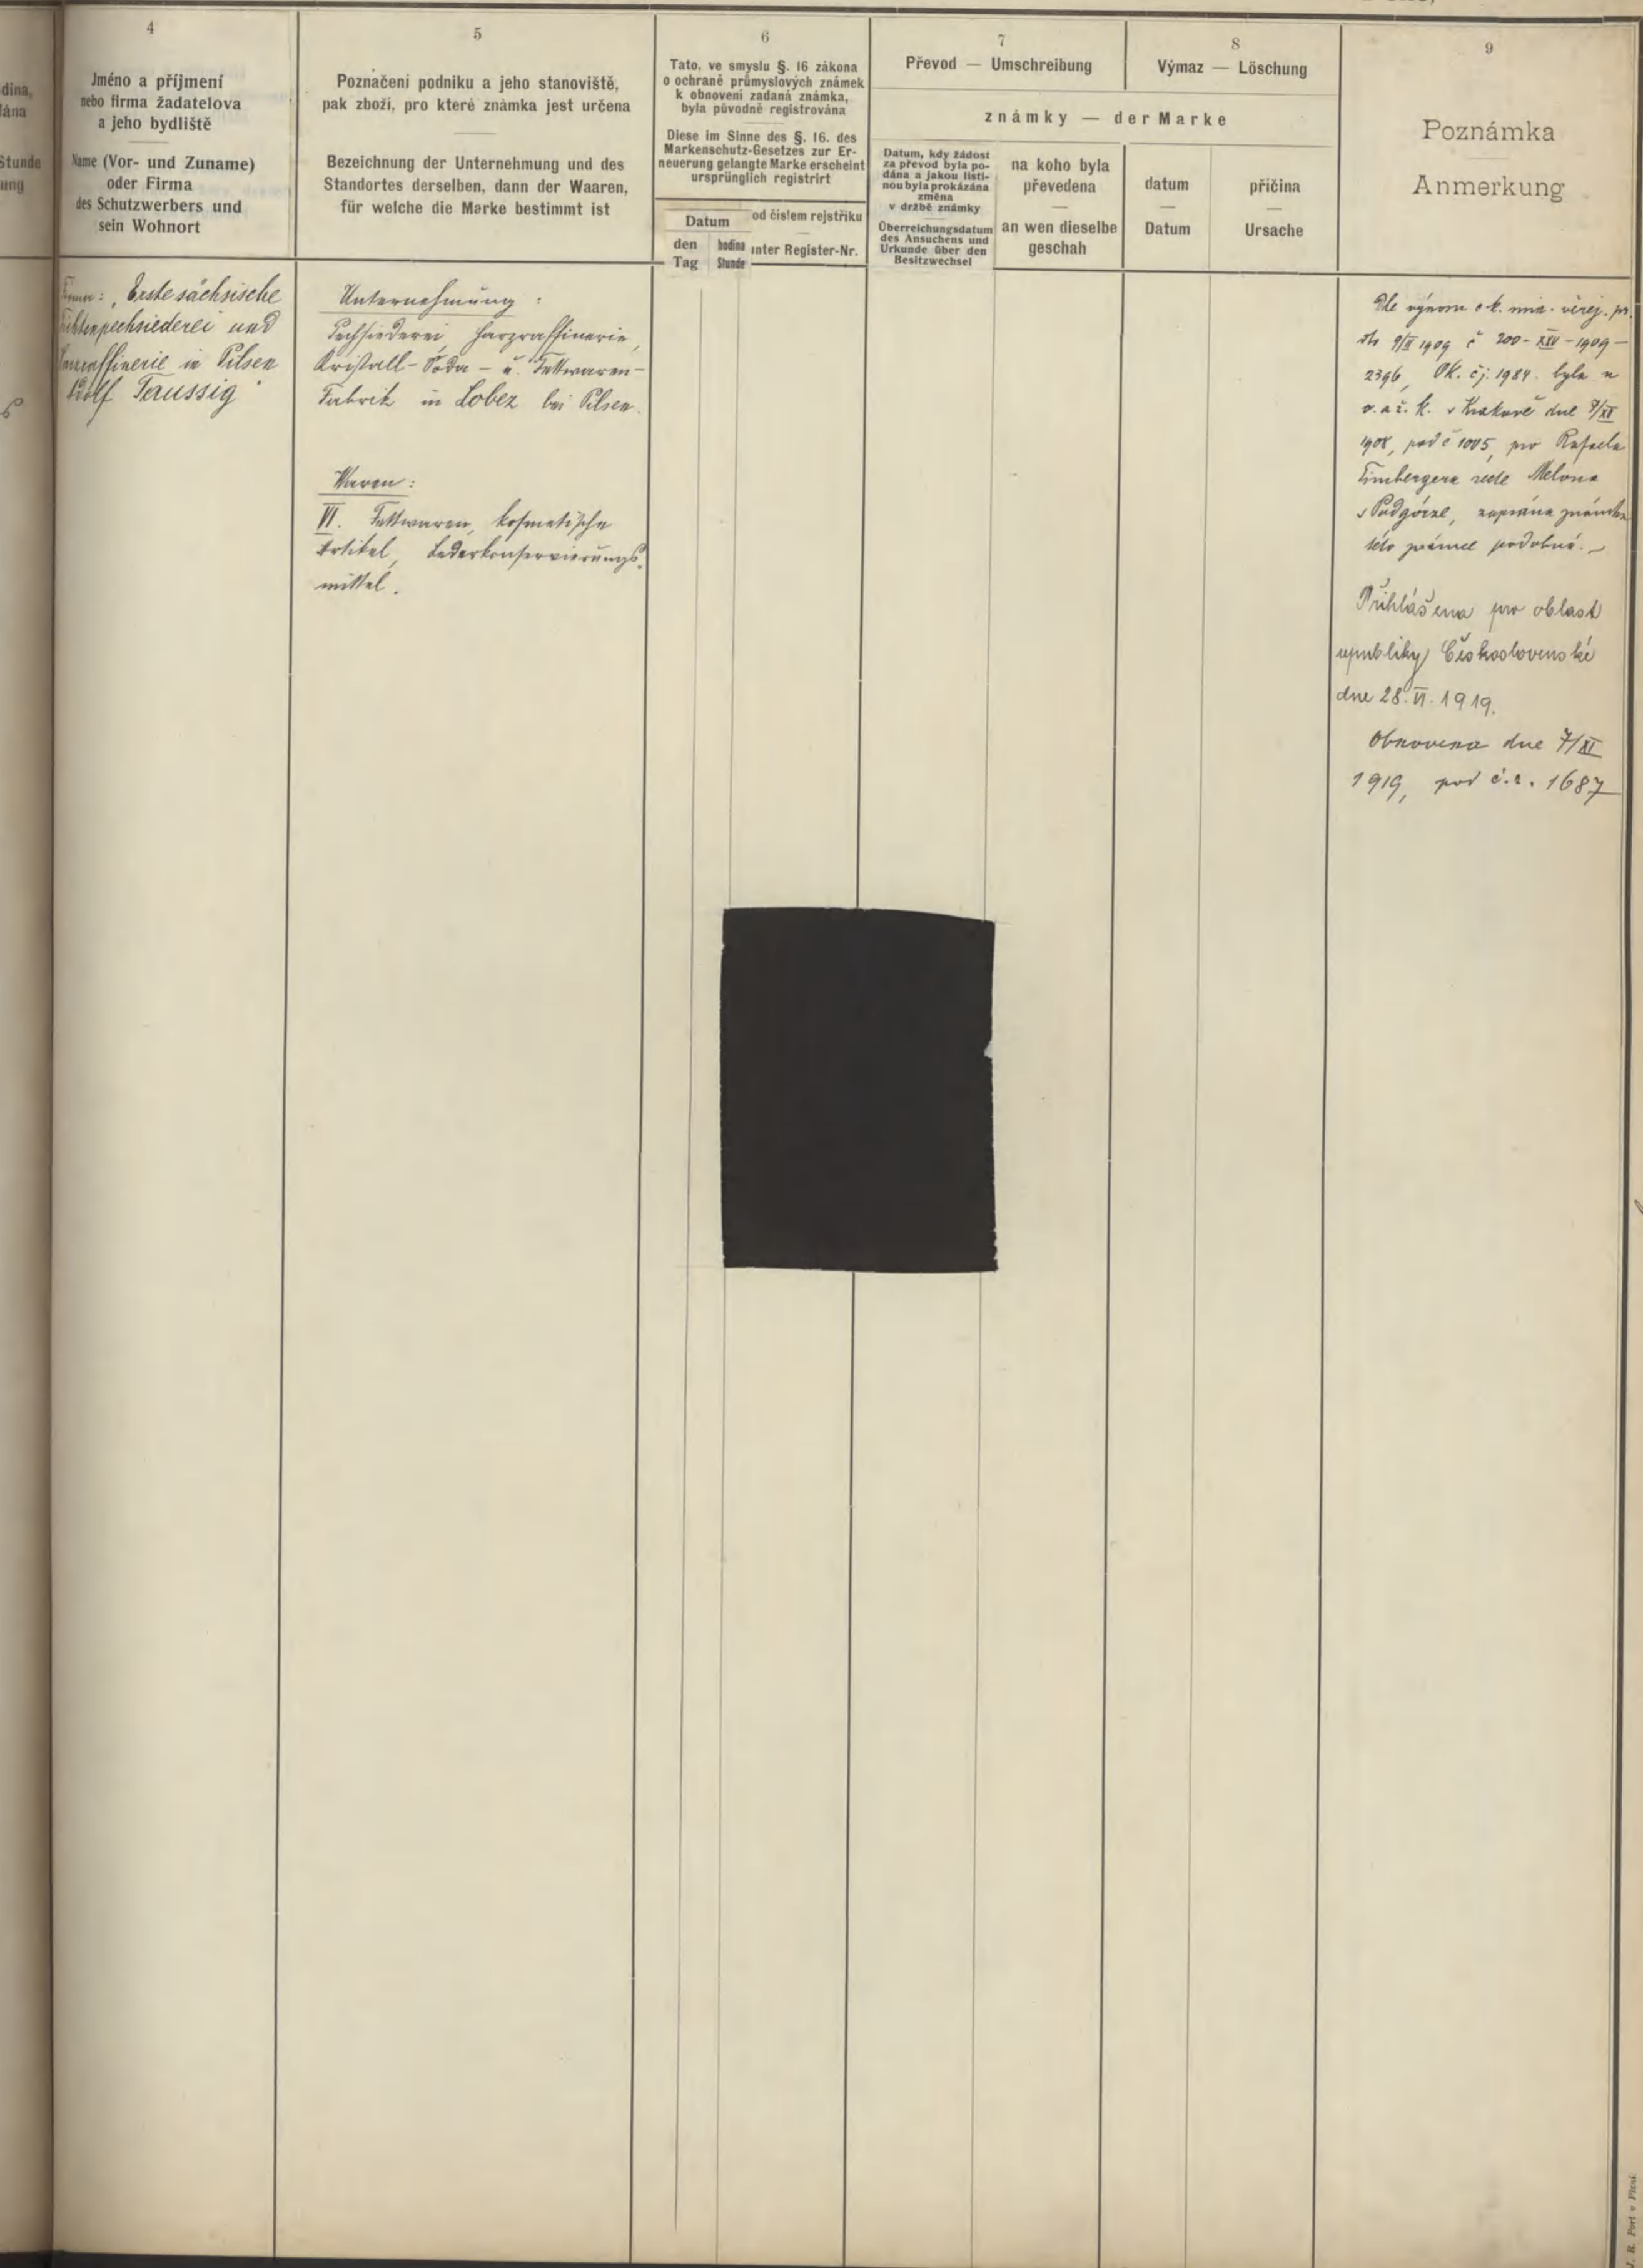 dina,
lána
Stunde
ung
4
Jméno a příjmení
nebo firma žadatelova
a jeho bydliště
Name (Vor- und Zuname)
oder Firma
des Schutzwerbers und
sein Wohnort
5
Poznáčení podniku a jeho stanoviště,
pak zboží, pro které známka jest určena
Bezeichnung der Unternehmung und des
Standortes derselben, dann der Waaren,
für welche die Marke bestimmt ist
6
Tato, ve smyslu §. 16 zákona
o ochraně průmyslových známek
k obnovení zadaná známka,
byla původně registrována
Diese im Sinne des §. 16. des
Markenschutz-Gesetzes zur Er-
neuerung gelangte Marke erscheint
ursprünglich registrirt
Datum
den
Tag
hodina
Stunde
od číslem rejstříku
unter Register-Nr.
7
Převod — Umschreibung
8
Výmaz — Löschung
známky — der Marke
Datum, kdy žádost
za převod byla po-
dána a jakou listi-
nou byla prokázána
změna
v držbě známky
Überreichungsdatum
des Ansuchens und
Urkunde über den
Besitzwechsel
na koho byla
převedena
an wen dieselbe
geschah
datum
Datum
příčina
Ursache
9
Poznámka
Anmerkung
Erste sächsische
Fichtenpechsiederei und
Harzraffinerie in Pilsen
Adolf Taussig
Unternehmung:
Pechsiederei, Harzraffinerie,
Kristall-Soda- u. Fettwaren-
Fabrik in Lobez bei Pilsen.
Waren:
VI. Fettwaren, kosmetische
Artikel, Lederkonservierungs-
mittel.
Dle výnosu c. k. min. veřej. pr.
1909 č 200-XXV-1909-
2396, OK. čj. 1984. byla u
o. a ž. k. v Krakově dne 7/XI
1908, pod č 1005, pro Rafaela
Timbergera Melona
v Podgórze, zapsána známka
této známce podobná.
Přihlášena pro oblast
republiky Československé
dne 28. VI. 1919.
Obnovena dne 7/XI
1919, pod č. r. 1687
J. R. Port v Plzni